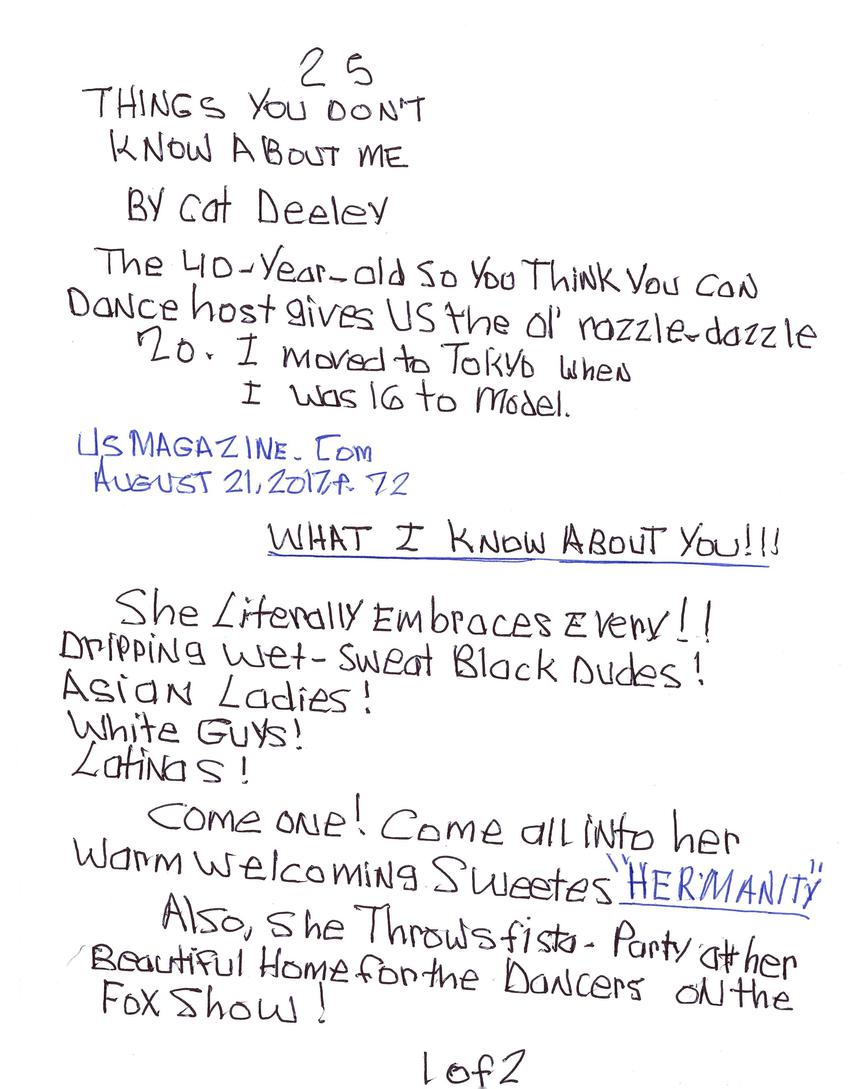 25
THINGS YOU DON'T
KNOW ABOUT ME
BY Cat Deeley
The 40-Year-old So You Think You Can
Dance host gives US the ol' razzle-dazzle
20. I moved to Tokyo when
I was 16 to Model.
USMAGAZINE.Com
AUGUST 21, 2017 p. 72
WHAT I KNOW ABOUT YOU!!!
She Literally Embraces Every!!
Dripping Wet-Sweat Black Dudes!
Asian Ladies!
White Guys!
Latinas!
Come one! Come all into her
Warm Welcoming Sweetes "HER'MANITY"
Also, She Throws fista-Party at her
Beautiful Home for the Dancers on the
Fox Show!
1 of 2